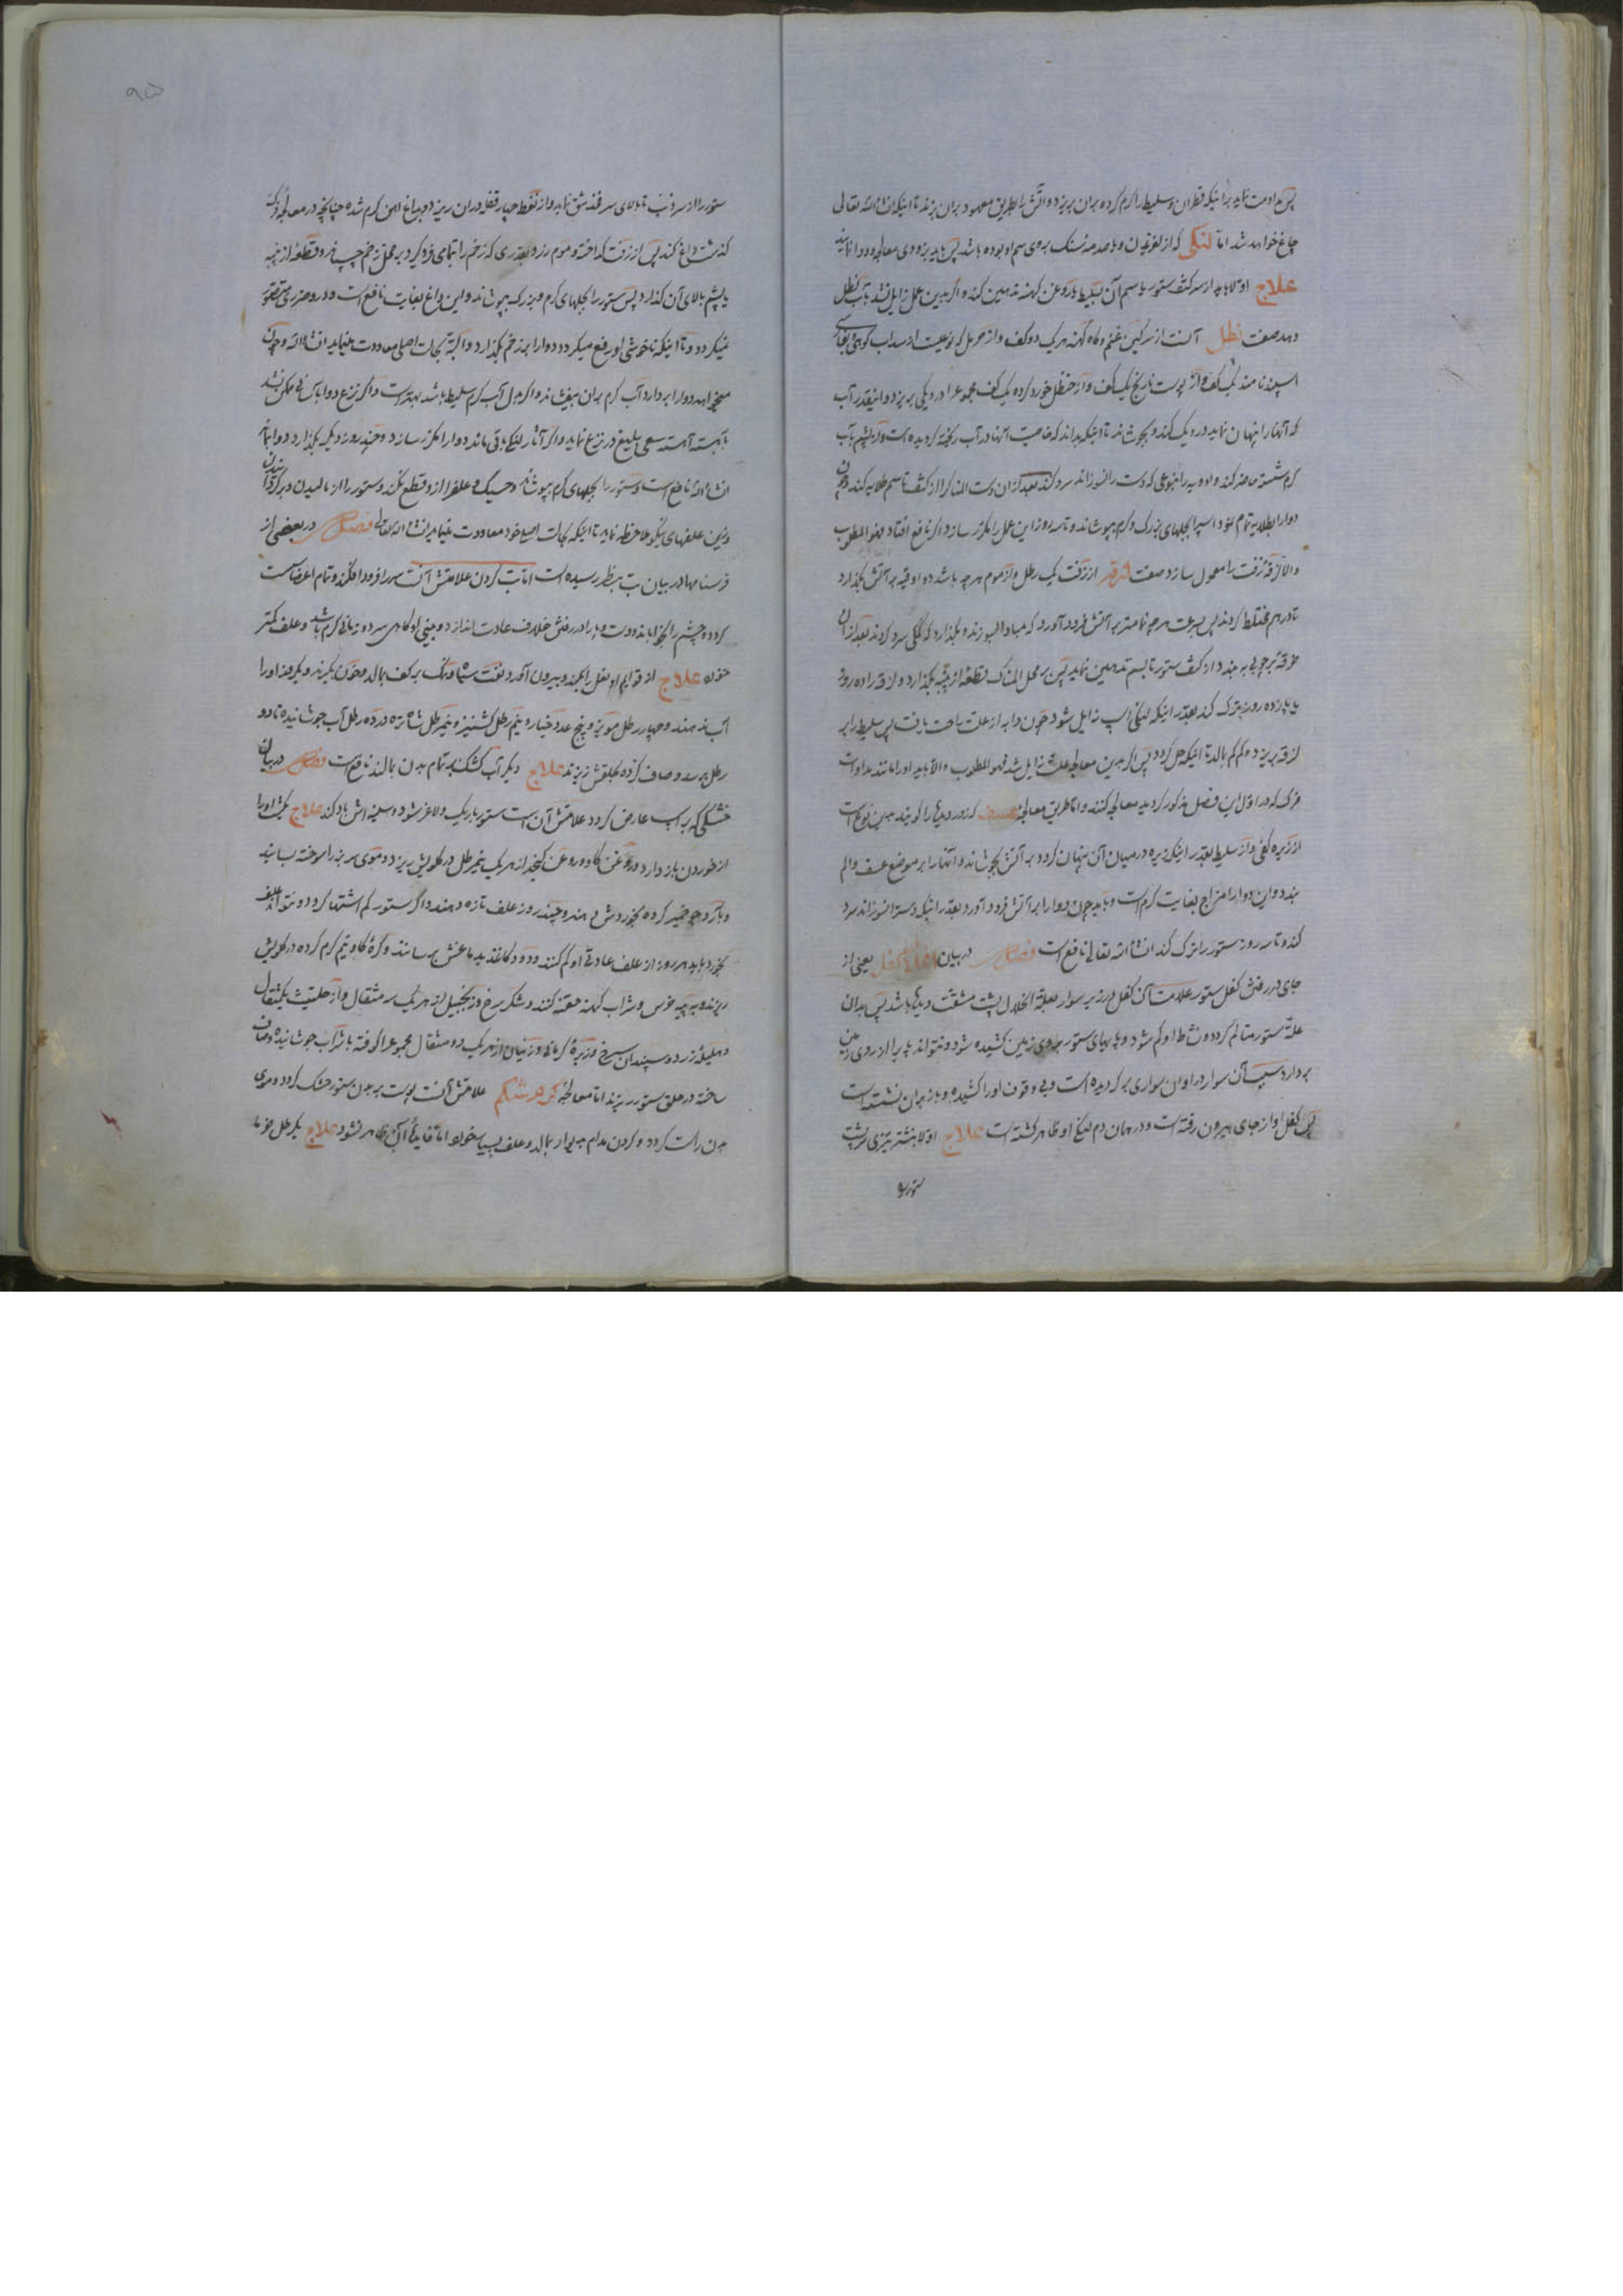 پس مداومت نماید برانیکه قطران و سلیط را کرم کرده بران بریزد و آتش را بطریق معهود بران بزند تا اینکه انشاالله تعالی
چاغ خواهد شد اما لنکی که از لغزیدن و یا صدمه سنک بروی سم او بوده باشد پس باید بزودی معالجه و دوا نمایند
علاج اولا باید از سر کتف ستور تا سم آن بسلیط و روغن کهنه تدهین کند و اگر بدین عمل زایل نشد بآب نطل
دهد صفت نطل آنست از سرکین غنم و کاه کهنه هر یک دو کف و از حرمل که نوعیست از سداب کوهی و بفارسی
اسپند نامند یک کف و از پوست نارنج یک کف و از حنظل خورد کرده یک کف مجموع را در دیکی بریزد و اینقدر آب
که آنها را پنهان نماید در دیک کند و بجوشاند تا اینکه بداند که خاصیت آنها در آب ریخته کردیده است و از پشم بآب
کرم شسته حاضر کند و دابه را بنوعی که دست را نسوزاند سرد کند بعد از ان دست المناک را از کتف تا سم طلایه کند و چون
دوا را بطلایه تمام نمود اسپ را بجلهای بزرک و کرم بپوشاند و تا سه روز این عمل را مکرر سازد اگر نافع افتاد فهو المطلوب
والا لزقه زفت را معمول سازد صفت لزقه از زفت یک رطل و از موم هر چه باشد دو اوقیه بر آتش بگذارد
تا در هم مختلط کردند پس بسرعت هر چه تمامتر بر آتش فرود آورد که مبادا بسوزند و بگذارد که کمکی سرد کردند بعد از ان
خرقه بر چوبی به بندد از کتف ستور تا بسم تدهین نماید پس بر محل المناک قطعه از پنبه بگذارد و لزقه را ده روز
یا پانزده روز بترک کند بقدر اینکه لنکی اسپ زایل شود چون دابه از علت راحت یافت پس سلیط را بر
لزقه بریزد و کم کم بمالد تا اینکه حل کردد پس اگر بدین معالجه علت زایل شد فهو المطلوب والا باید او را مانند مداوات
فرک که در اول این فصل مذکور کردید معالجه کنند و اما طریق معالجه که زور دیدکی را گویند بدین نوع است
از زیره کفی و از سلیط بقدر اینکه زیره در میان آن پنهان کردد بر آتش بجوشاند و آنها را بر موضع عسف و الم
بندد و این دوا را مزاج بغایت کرم است و باید چون دوا را بر آتش فرود آورد بقدر اینکه دست را نسوزاند سرد
کند و تا سه روز ستور را ترک کند انشاالله تعالی نافع است فصل در بیان یعنی از
جای در رفتن کفل ستور علامت آن کفل در زیر سوار بعلة اختلال پشت مشقت دیدکی باشد پس بدان
علة ستور متالم کردد و نشاط او کم شود و پایهای ستور بروی زمین کشیده شود و نتواند پا را از روی زمین
بردارد سبب آن سوار در اوان سواری برکردیده است و بی وقوف او را کشیده و باز بران نشسته است
پس کفل او از جای بیرون رفته است و در همان دم لنکی او ظاهر کشته است علاج اولا بنشتر تیزی پشت
ستور را
۹۵
ستور را از سر ذنب تا بالای سر فخذ شق نماید و از نفط چهار قفله دران ریزد و بداغ آهن کرم شده چنانچه در معالجه
کذشت داغ کند پس از زفت کداخته و موم زرد بقدری که زخم را تمامی فرو کیرد بر محل زخم چسپانیده و قطعه از پنبه
یا پشم بالای آن کذارد پس ستور را بجلهای کرم و بزرک بپوشاند و این داغ بغایت نافع است و در و ضرری متصور
نمیکردد و تا اینکه ناخوشی او رفع میکردد دوا را بر زخم بگذارد و البته بحالت اصلی معاودت مینماید انشاالله و چون
میخواهد دوا را بردارد آب کرم بران بیفشاند و اگر بدل آب کرم سلیط باشد بهتر است و اگر نزع دوا بآسانی ممکن نشد
باهسته آهسته سعی بلیغ در نزع نماید و اگر آثار لنکی باقی ماند دوا را مکرر سازد و چند روز دیکر بگذارد دوا بماند
انشاالله نافع است و ستور را بجلهای کرم بپوشاند و خسیک و علف را از و قطع نکند و ستور را از مالیدن و برکردانیدن
وزین علفهای نیکو ملاحظه نماید تا اینکه بحالت اصلی خود معاودت مینماید انشاالله تعالی فصل در بعضی از
فرسنامها در بیان تب بنظر رسیده است اما تب کردن علامتش آنست سر را فرود افکند و تمام اعضا سست
کرده و چشم را بخواباند و دست و پا را در رفتن خلاف عادت اندازد و بینی او کاهی سرد و زمانی کرم باشد و علف کمتر
خورد علاج از قوایم او نعل را بکنند و بیرون آورد نفت سیاه و نمک بر کف بمالد و خون بکیرند و یکروز او را
آب ندهند و چهار رطل مویز و پنج عدد خیار و نیم رطل کشنیز و نیم رطل شاه تره در ده رطل آب جوشانیده تا دو
رطل برسد و صاف کرده بحلقش ریزند علاج دیکر آب کشنک بر تمام بدن بمالند نافع است فصل در بیان
خشکی که بر اسپ عارض کردد علامتش آن است ستور باریک و لاغر شود و سینه اش باد کند علاج یکشب او را
از خوردن باز دارد و روغن کاو و روغن کنجد از هر یک نیم رطل در کلویش ریزد و موی سر بز را سوخته بسایند
و بآرد جو خمیر کرده بخوردش دهند و چند روز علف تازه دهند و اگر ستور کم اشتها کردد و نتواند علف
بخورد باید هر روز از علف عادتی او کم کنند و دود کاغذ بدماغش برسانند و کره کاو نیم کرم کرده در کلویش
ریزند و به پیه خرس و شراب کهنه حقنه کنند و شکر سرخ و زنجبیل از هر یک سه مثقال و از حلتیت یکمثقال
و هلیله زرد و سپندان سرخ و زیره کرمانی و زنیان از هر یک دو مثقال مجموع را کوفته با شراب جوشانیده و صاف
ساخته در حلق ستور ریزند اما معالجه علامتش آنست پوست بر بدن ستور خشک کردد و موی
بدن راست کردد و کردن مدام بدیوار بمالد و علف بسیار خورد اما فایده آن ظاهر نشود علاج یکرطل خرما